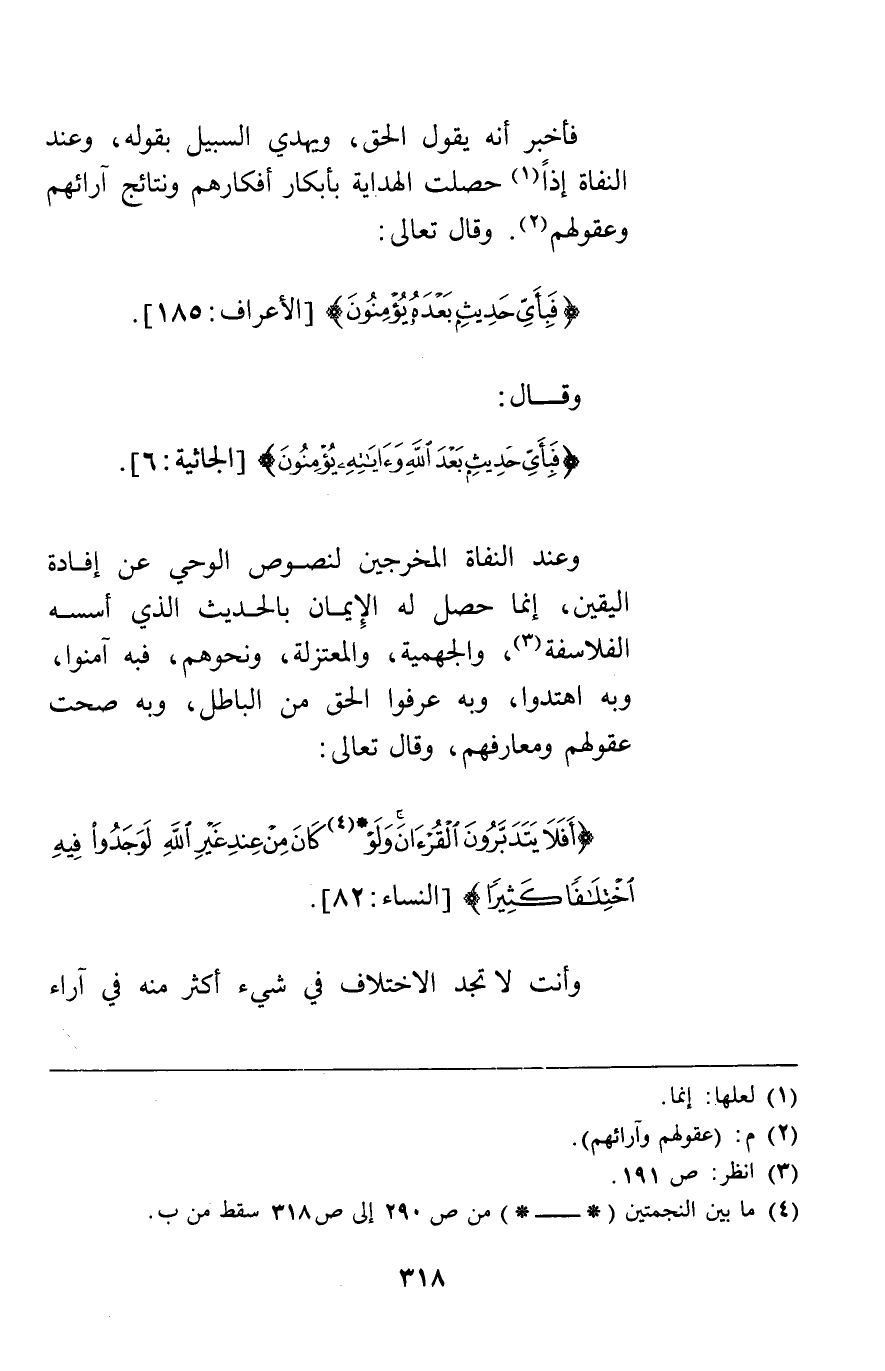 فأخبر أنه يقول الحق، ويهدي السبيل بقوله، وعند
النفاة إذاً(١) حصلت الهداية بأبكار أفكارهم ونتائج آرائهم
وعقولهم(٢). وقال تعالى:
﴿فَبِأَيِّ حَدِيثٍۭ بَعْدَهُۥ يُؤْمِنُونَ﴾ [الأعراف: ١٨٥].
وقـــال:
﴿فَبِأَيِّ حَدِيثٍۭ بَعْدَ ٱللَّهِ وَءَايَـٰتِهِۦ يُؤْمِنُونَ﴾ [الجاثية: ٦].
وعند النفاة المخرجين لنصـوص الوحي عن إفـادة
اليقين، إنما حصل له الإِيمـان بالحـديث الذي أسسـه
الفلاسفة(٣)، والجهمية، والمعتزلة، ونحوهم، فبه آمنوا،
وبه اهتدوا، وبه عرفوا الحق من الباطل، وبه صحت
عقولهم ومعارفهم، وقال تعالى:
﴿أَفَلَا يَتَدَبَّرُونَ ٱلْقُرْءَانَۚ وَلَوْ*(٤) كَانَ مِنْ عِندِ غَيْرِ ٱللَّهِ لَوَجَدُوا۟ فِيهِ
ٱخْتِلَـٰفًا كَثِيرًا﴾ [النساء: ٨٢].
وأنت لا تجد الاختلاف في شيء أكثر منه في آراء
(١) لعلها: إنما.
(٢) م: (عقولهم وآرائهم).
(٣) انظر: ص ١٩١.
(٤) ما بين النجمتين (* ـــــ *) من ص ٢٩٠ إلى ص٣١٨ سقط من ب.
٣١٨